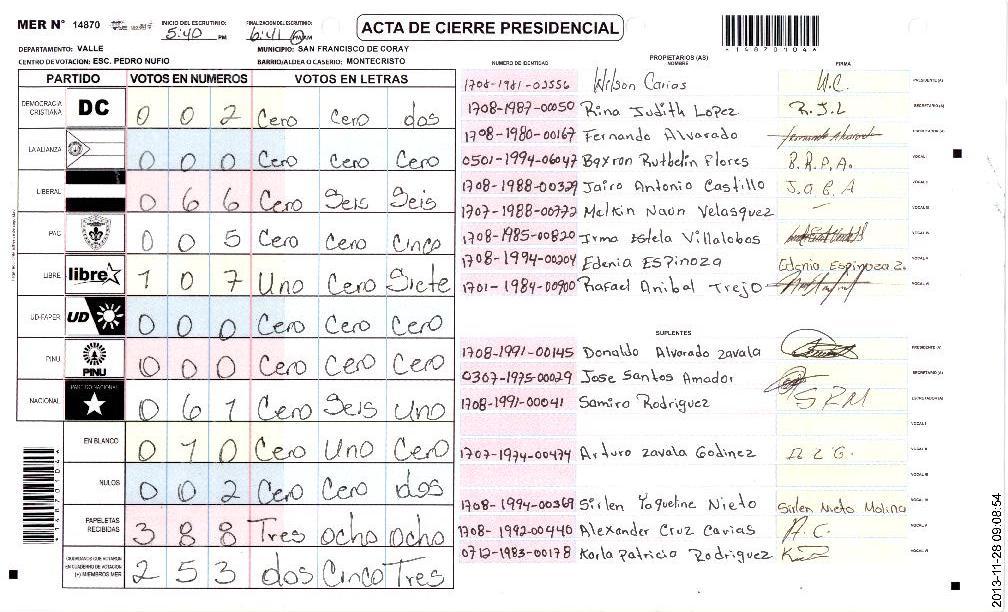 MER N° 14870
INICIO DEL ESCRUTINIO: 5:40 PM
FINALIZACION DEL ESCRUTINIO: 6:41 PM
ACTA DE CIERRE PRESIDENCIAL
-14870104-
DEPARTAMENTO: VALLE
MUNICIPIO: SAN FRANCISCO DE CORAY
CENTRO DE VOTACION: ESC. PEDRO NUFIO
BARRIO/ALDEA O CASERIO: MONTECRISTO
PARTIDO VOTOS EN NUMEROS VOTOS EN LETRAS
DEMOCRACIA CRISTIANA DC 0 0 2 Cero Cero dos
LA ALIANZA 0 0 0 Cero Cero Cero
LIBERAL 0 6 6 Cero Seis Seis
PAC 0 0 5 Cero Cero Cinco
LIBRE libre 1 0 7 Uno Cero Siete
UD-FAPER UD 0 0 0 Cero Cero Cero
PINU PINU 0 0 0 Cero Cero Cero
NACIONAL PARTIDO NACIONAL 0 6 1 Cero Seis Uno
EN BLANCO 0 1 0 Cero Uno Cero
NULOS 0 0 2 Cero Cero dos
PAPELETAS RECIBIDAS 3 8 8 Tres ocho ocho
CIUDADANOS QUE VOTARON EN CUADERNO DE VOTACION (+) MIEMBROS MER 2 5 3 dos Cinco Tres
PROPIETARIOS (AS)
NUMERO DE IDENTIDAD NOMBRE FIRMA
1708-1981-03556 Wilson Carias W.C. PRESIDENTE(A)
1708-1987-00050 Rina Judith Lopez R.J.L SECRETARIO(A)
1708-1980-00167 Fernando Alvarado ESCRUTADOR(A)
0501-1994-06047 Bayron Ruthelin Flores VOCAL I
1708-1988-00329 Jairo Antonio Castillo VOCAL II
1707-1988-00772 Melkin Naun Velasquez VOCAL III
1708-1985-00820 Irma Estela Villalobos VOCAL IV
1708-1994-00204 Edenia ESPinoza Edenia Espinoza Z. VOCAL V
1701-1984-00900 Rafael Anibal Trejo VOCAL VI
SUPLENTES
1708-1991-00145 Donaldo Alvarado zavala PRESIDENTE(A)
0307-1975-00029 Jose Santos Amador SECRETARIO(A)
1708-1991-00041 Samiro Rodriguez SRM ESCRUTADOR(A)
VOCAL I
1707-1974-00474 Arturo zavala Godinez VOCAL II
VOCAL III
1708-1994-00369 Sirlen Yoqueline Nieto Sirlen Nieto Molina VOCAL IV
1708-1992-00440 Alexander Cruz Carias A.C. VOCAL V
0712-1983-00178 Karla Patricia Rodriguez VOCAL VI
2013-11-28 09:08:54